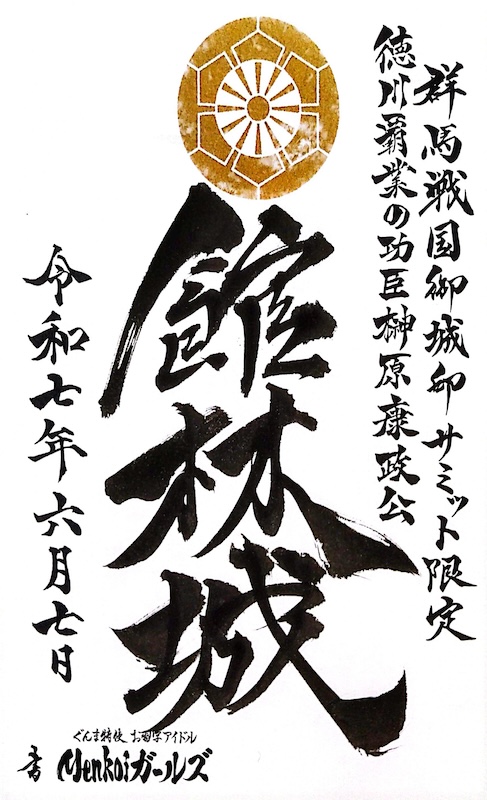 群馬戦国御城印サミット限定
徳川覇業の功臣榊原康政公
館林城
令和七年六月七日
ぐんま特使 お習字アイドル
書 Menkoiガールズ